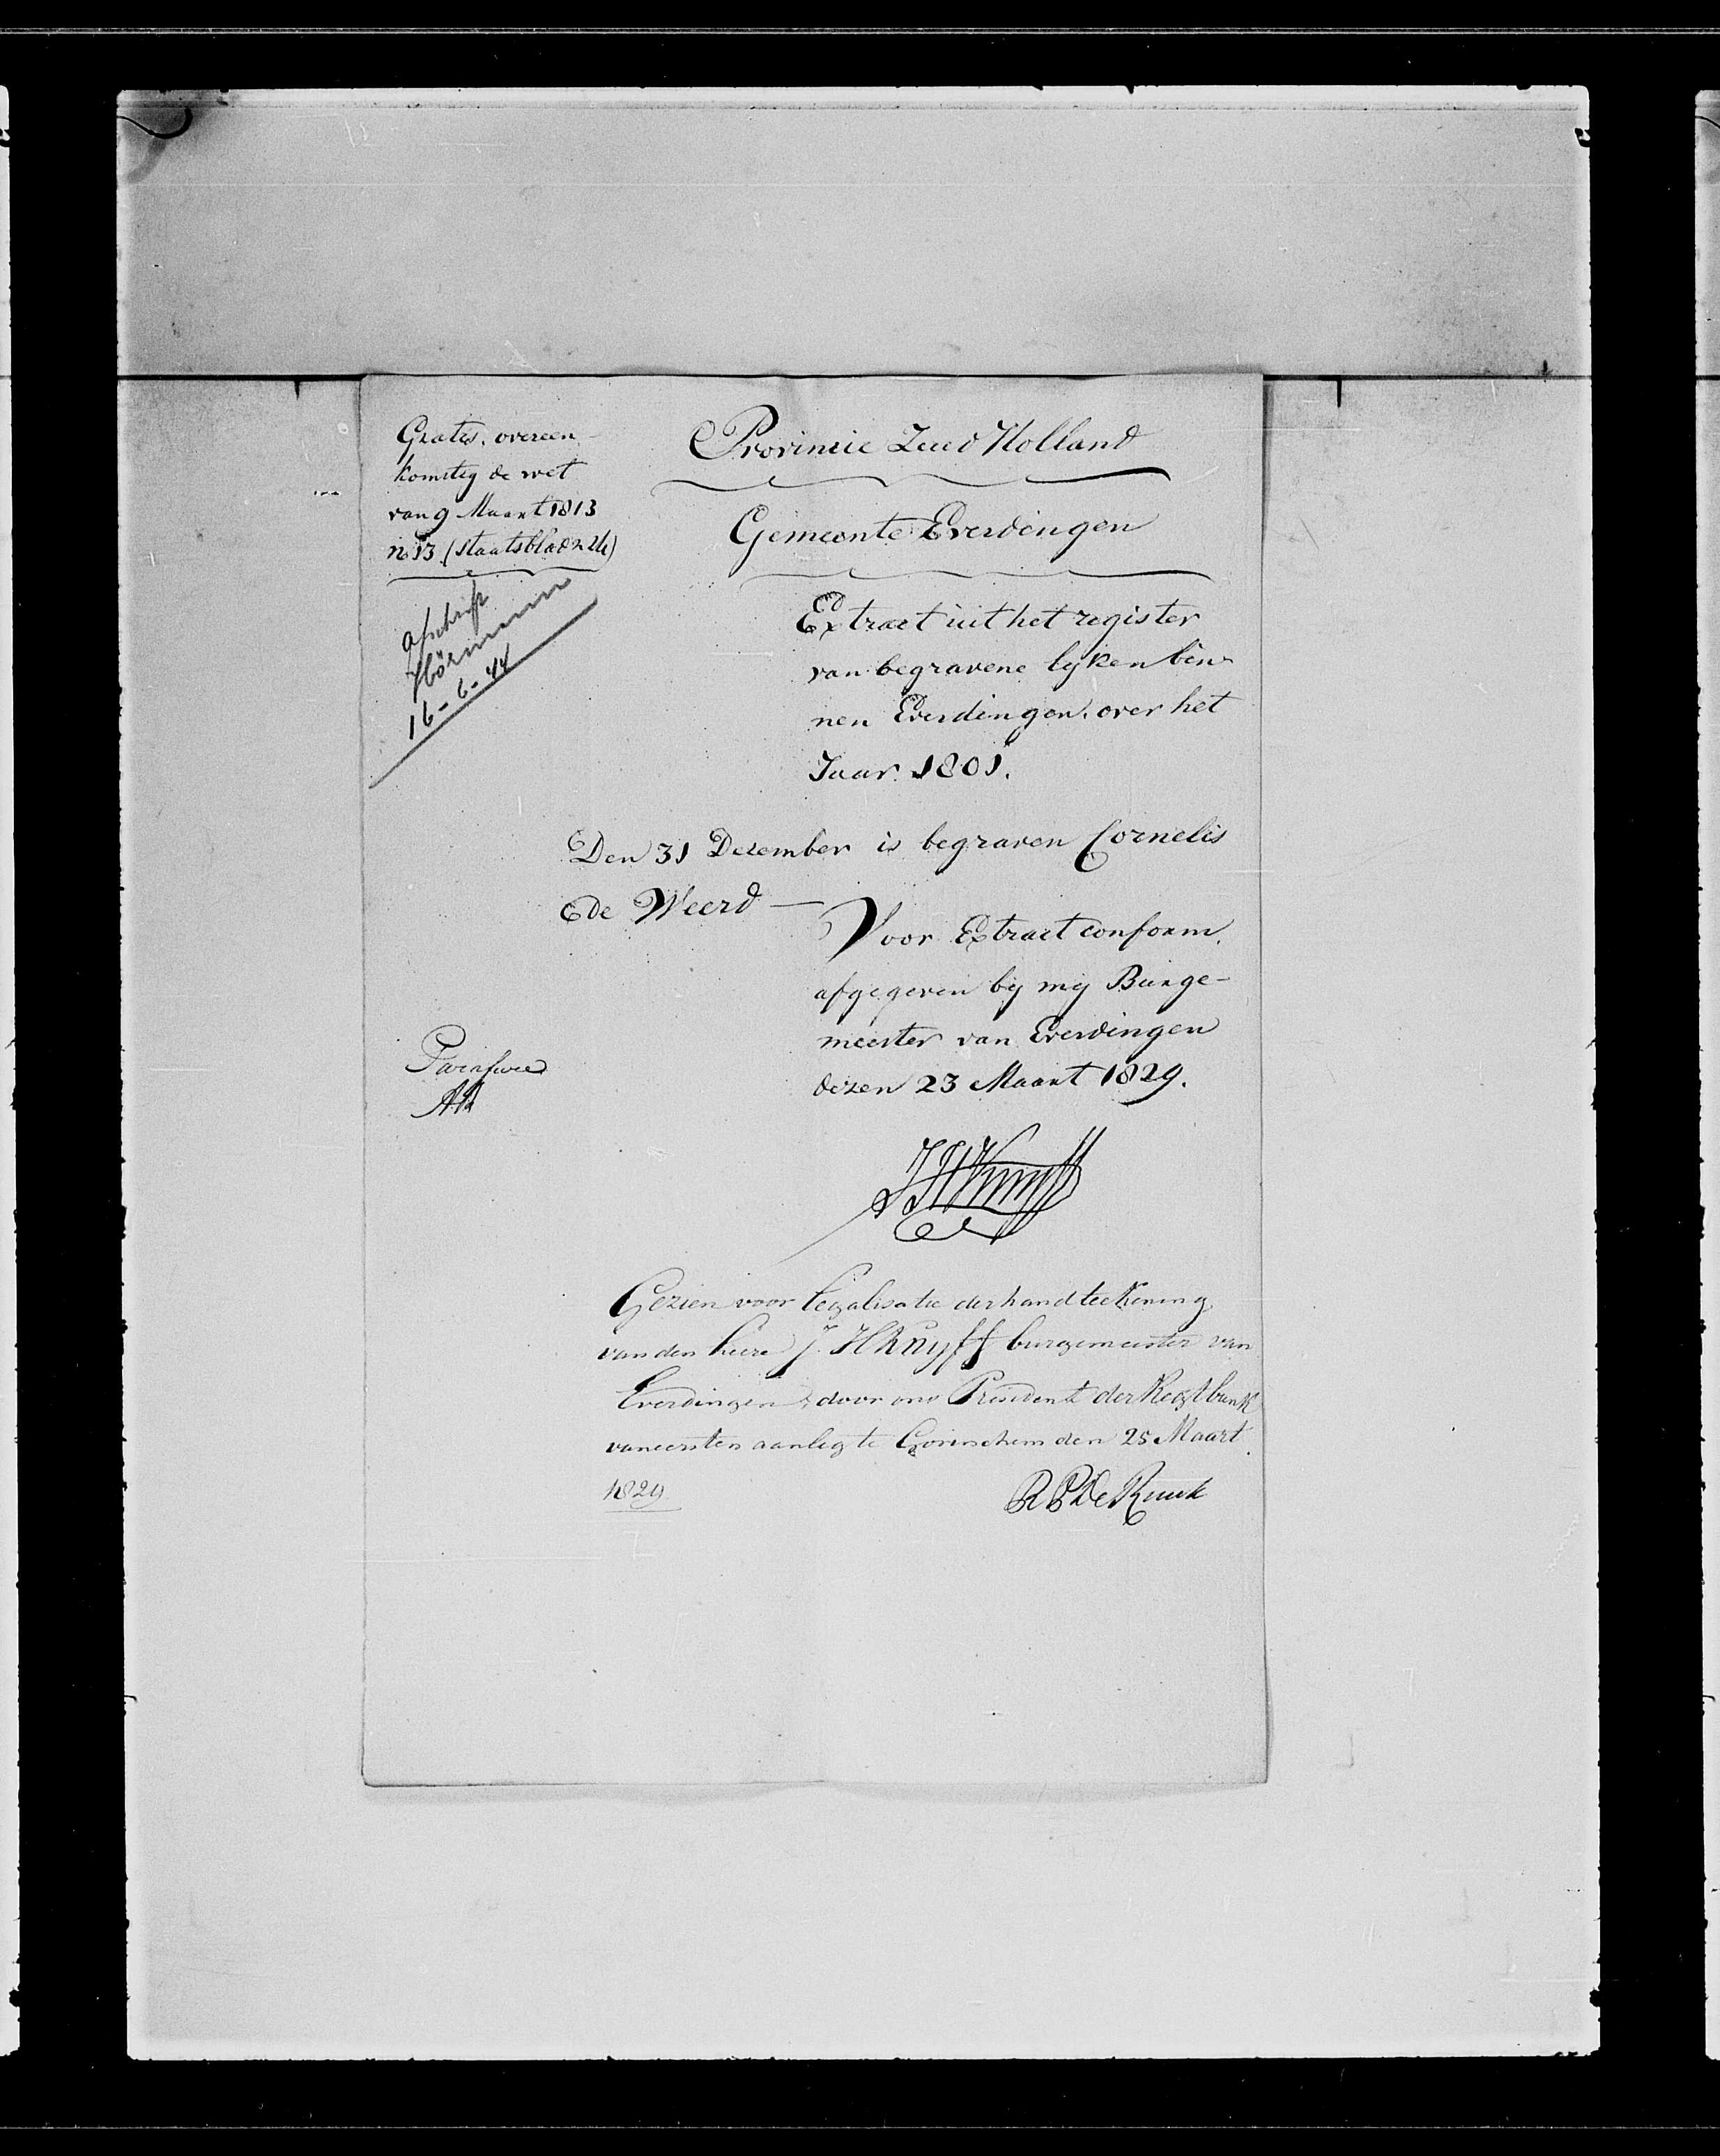 Gratis. overeen-
komstig de wet
van 9 Maart 1813
no 13. (Staatsblad n
afschrift
16-6-44
Provincie Zuid Holland
Gemeente Everdingen
Extract uit het register
van begravene lyken bin-
nen Everdingen. over het
Jaar. 1801.
Den 31 December is begraven Cornelis
de Weerd —
Voor Extract conform.
afgegeven by my Burge-
meester van Everdingen
dezen 23 Maart 1829.
JHKnyff
Gezien voor legalisatie der handteekening
van den heere J. H Knyff burgemeester van
Everdingen, door ons President der Regtbank
van eersten aanleg te Gorinchem den 25 Maart
1829